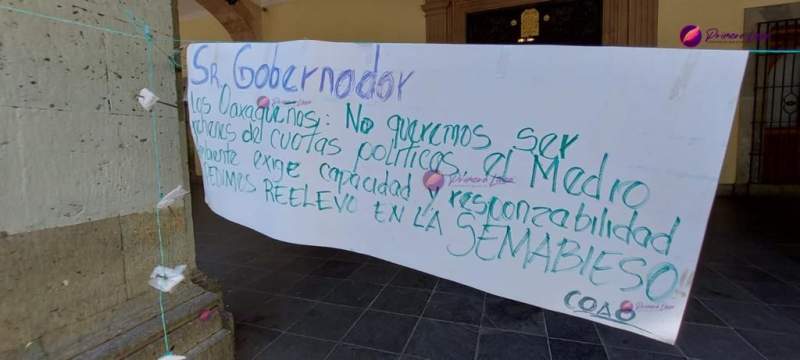 SR, Gobernador
Los Oaxaqueños: No queremos ser
rehenes del cuotas politicas, el Medio
Ambiente exige capacidad y responzabilidad
PEDIMOS REELEVO EN LA SEMABIESO
COA8
Primera Línea